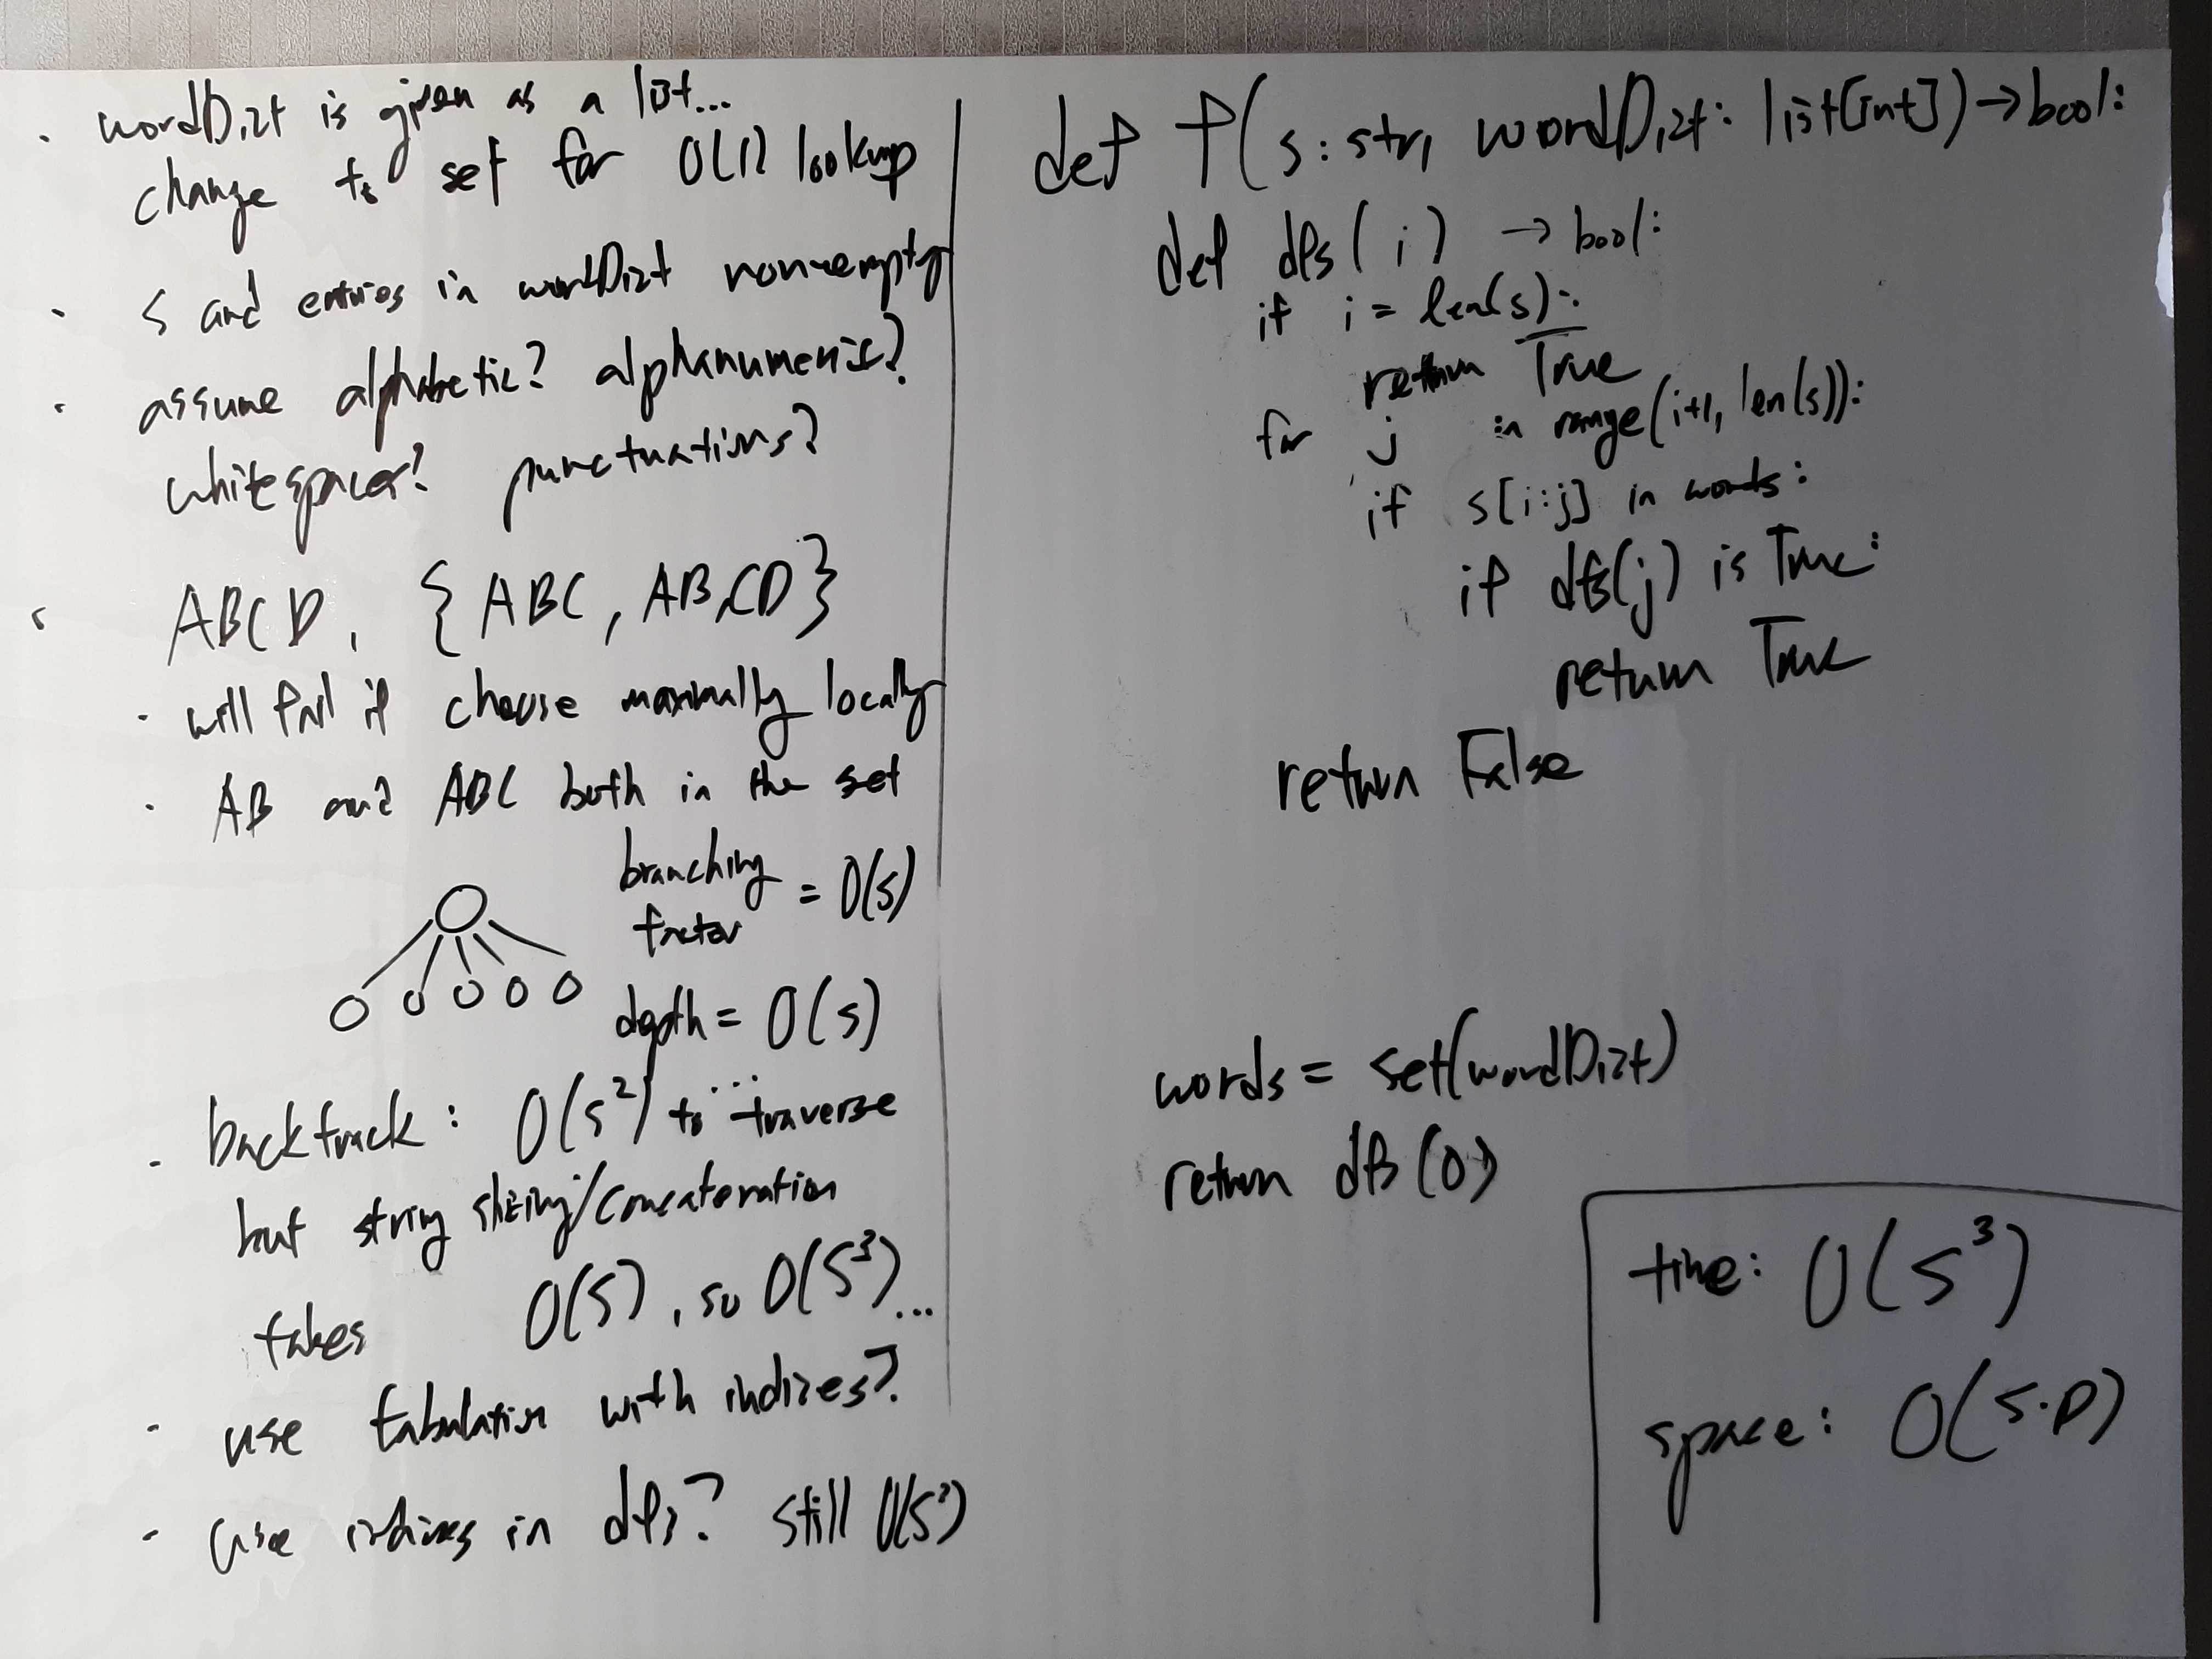 · wordDict is given as a list...
change to set for O(1) lookup
· s and entries in wordDict non-empty
· assume alphabetic? alphanumeric?
whitespaces? punctuations?
· ABCD, {ABC, AB, CD}
· will fail if choose maximally locally
· AB and ABC both in the set
branching factor = O(s)
depth = O(s)
· backtrack: O(s²) to traverse
but string slicing/concatenation
takes O(S), so O(S³)...
· use tabulation with indices?
· use indices in dfs? still O(S³)
def f(s: str, wordDict: list[int]) → bool:
def dfs(i) → bool:
if i = len(s):
return True
for j in range(i+1, len(s)):
if s[i:j] in words:
if dfs(j) is True:
return True
return False
words = set(wordDict)
return dfs(0)
time: O(S³)
space: O(S·D)